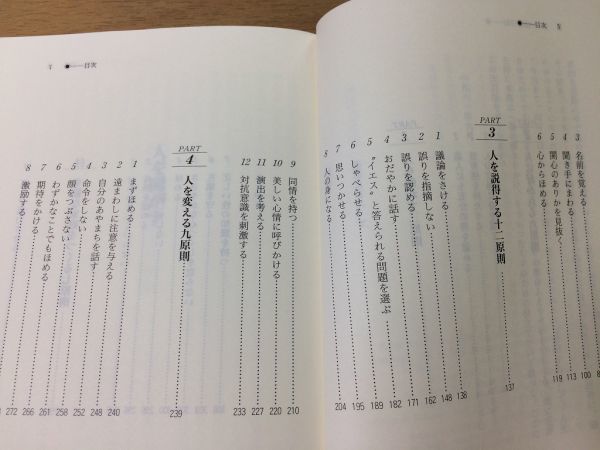 目次
3 名前を覚える
4 聞き手にまわる 100
5 関心のありかを見抜く 113
6 心からほめる 119
PART 3 人を説得する十二原則 137
1 議論をさける 138
2 誤りを指摘しない 148
3 誤りを認める 162
4 おだやかに話す 171
5 “イエス”と答えられる問題を選ぶ 182
6 しゃべらせる 189
7 思いつかせる 195
8 人の身になる 204
目次
9 同情を持つ 210
10 美しい心情に呼びかける 220
11 演出を考える 227
12 対抗意識を刺激する 233
PART 4 人を変える九原則 239
1 まずほめる 240
2 遠まわしに注意を与える 248
3 自分のあやまちを話す 252
4 命令をしない 258
5 顔をつぶさない 261
6 わずかなことでもほめる 266
7 期待をかける 272
8 激励する